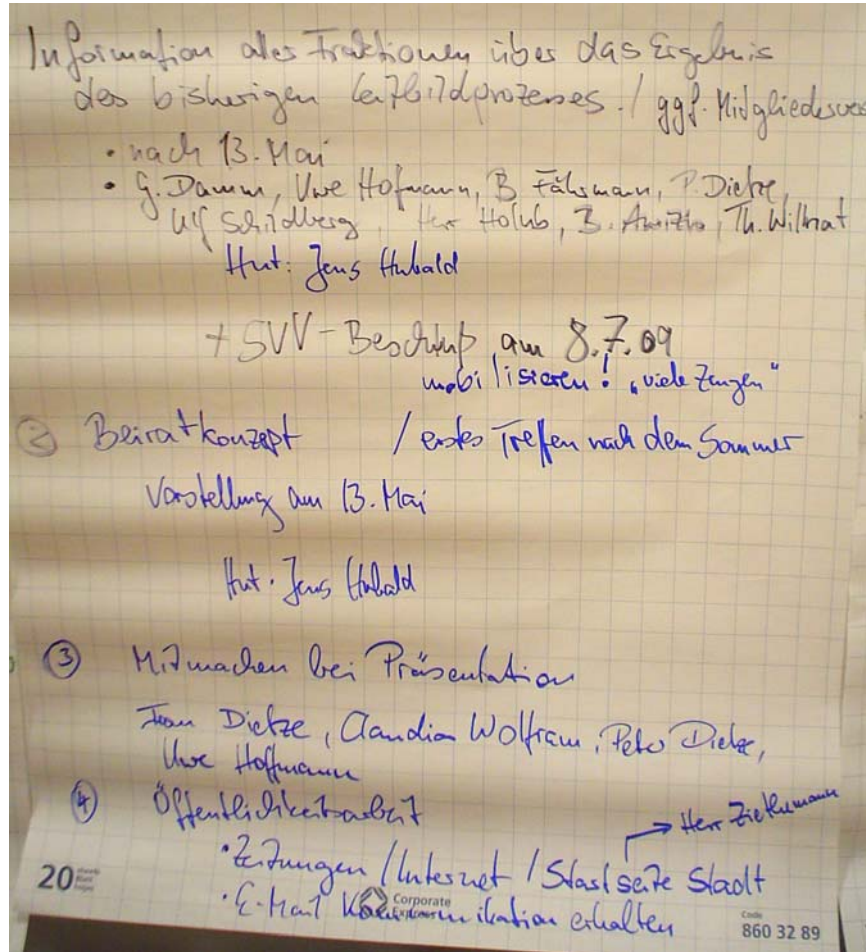 Information aller Fraktionen über das Ergebnis
des bisherigen Leitbildprozesses. / ggf. Mitgliedesver
• nach 13. Mai
• G. Damm, Uwe Hofmann, B. Fährmann, P. Dietze,
Ulf Schildberg, Herr Holub, B. Th. Wilhat
Hut: Jens Hubald
+ SVV-Beschluß am 8.7.09
mobilisieren! „viele Zeugen"
② Beiratkonzept / erstes Treffen nach dem Sommer
Vorstellung am 13. Mai
Hut: Jens Hubald
③ Mitmachen bei Präsentation
Frau Dietze, Claudia Wolfram, Peter Dietze,
Uwe Hoffmann
④ Öffentlichkeitsarbeit
→ Herr Ziethmann
• Zeitungen / Internet / Startseite Stadt
• E-Mail Kommunikation erhalten
20
Corporate
Express
Code
860 32 89